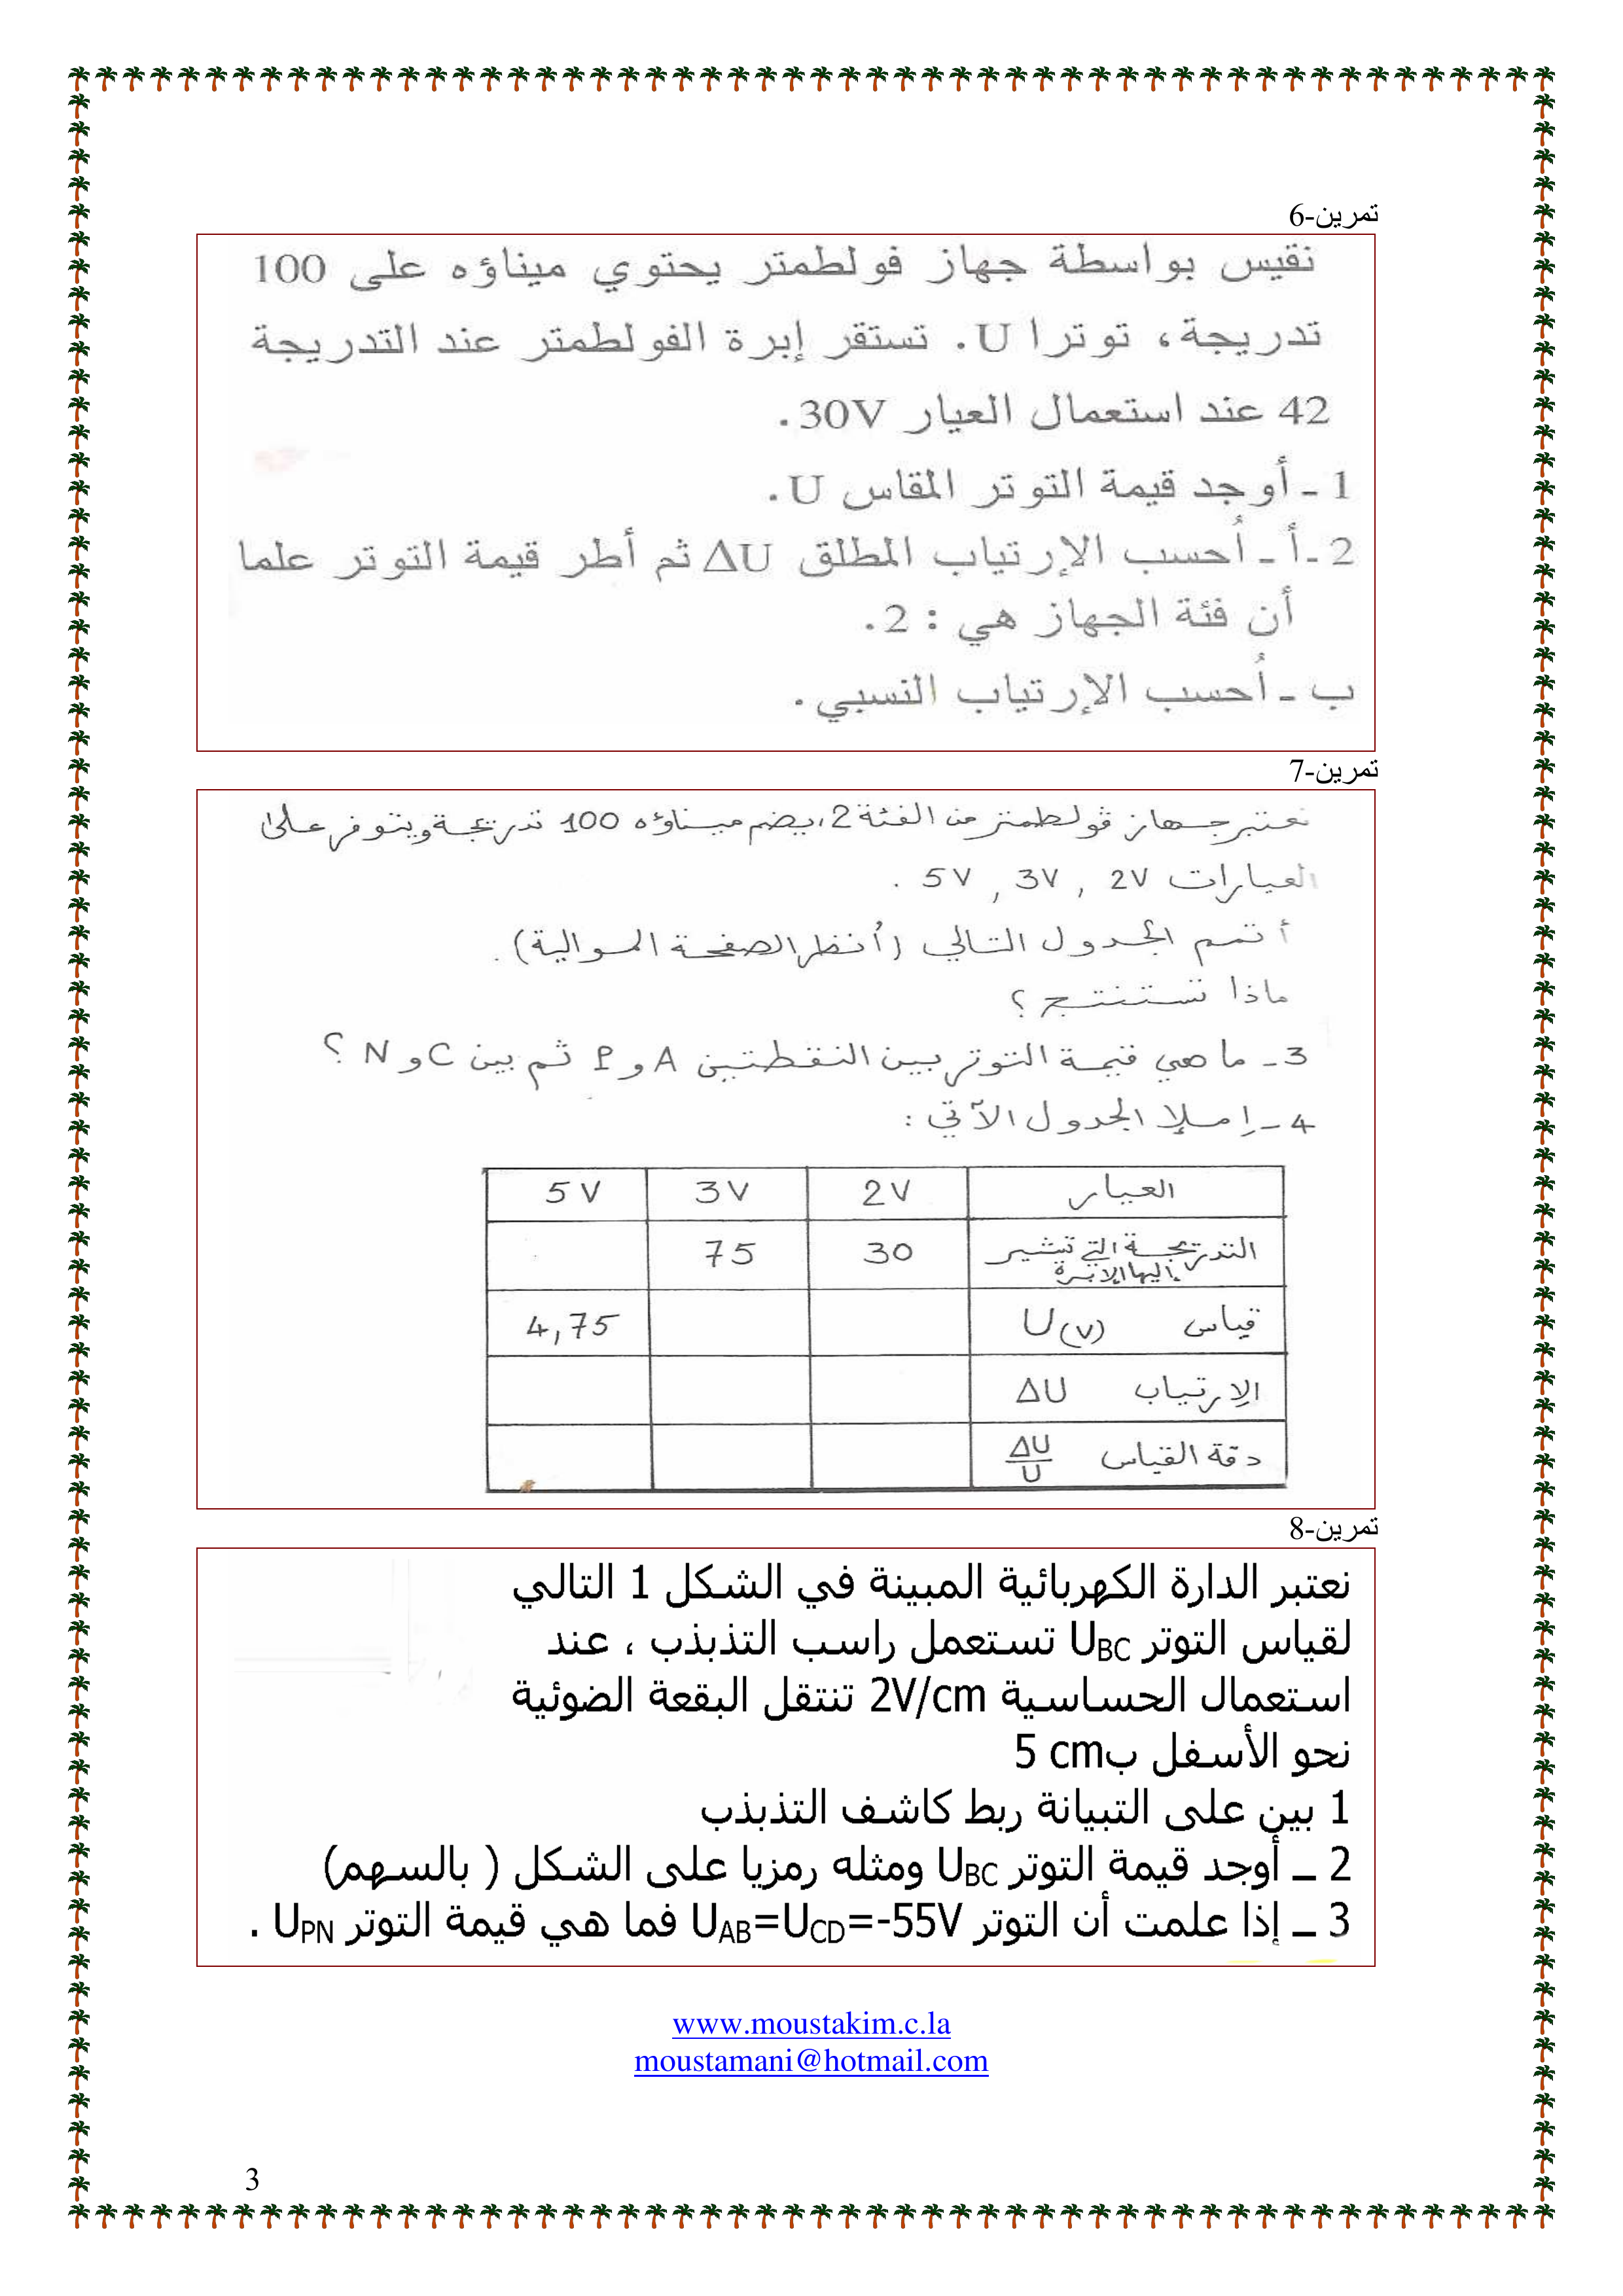 تمرين-6
نقيس بواسطة جهاز فولطمتر يحتوي ميناؤه على 100
تدريجة، توترا U. تستقر إبرة الفولطمتر عند التدريجة
42 عند استعمال العيار 30V.
1 - أوجد قيمة التوتر المقاس U.
2 - أ - أُحسب الإرتياب المطلق ΔU ثم أطر قيمة التوتر علما
أن فئة الجهاز هي : 2.
ب - أُحسب الإرتياب النسبي.
تمرين-7
نعتبر جهاز فولطمتر من الفئة 2، يضم ميناؤه 100 تدريجة ويتوفر على
العيارات 2V , 3V , 5V .
أتمم الجدول التالي (أُنظر الصفحة الموالية).
ماذا تستنتج ؟
3 - ما هي قيمة التوتر بين النقطتين A و P ثم بين C و N ؟
4 - إملإ الجدول الآتي :
العيار 2V 3V 5V
التدريجة التي تشير 30 75
إليها الإبرة
قياس U(V) 4,75
الإرتياب ΔU
دقة القياس ΔU/U
تمرين-8
نعتبر الدارة الكهربائية المبينة في الشكل 1 التالي
لقياس التوتر UBC تستعمل راسب التذبذب ، عند
استعمال الحساسية 2V/cm تنتقل البقعة الضوئية
نحو الأسفل ب5 cm
1 بين على التبيانة ربط كاشف التذبذب
2 ــ أوجد قيمة التوتر UBC ومثله رمزيا على الشكل ( بالسهم)
3 ــ إذا علمت أن التوتر UAB=UCD=-55V فما هي قيمة التوتر UPN .
www.moustakim.c.la
moustamani@hotmail.com
3